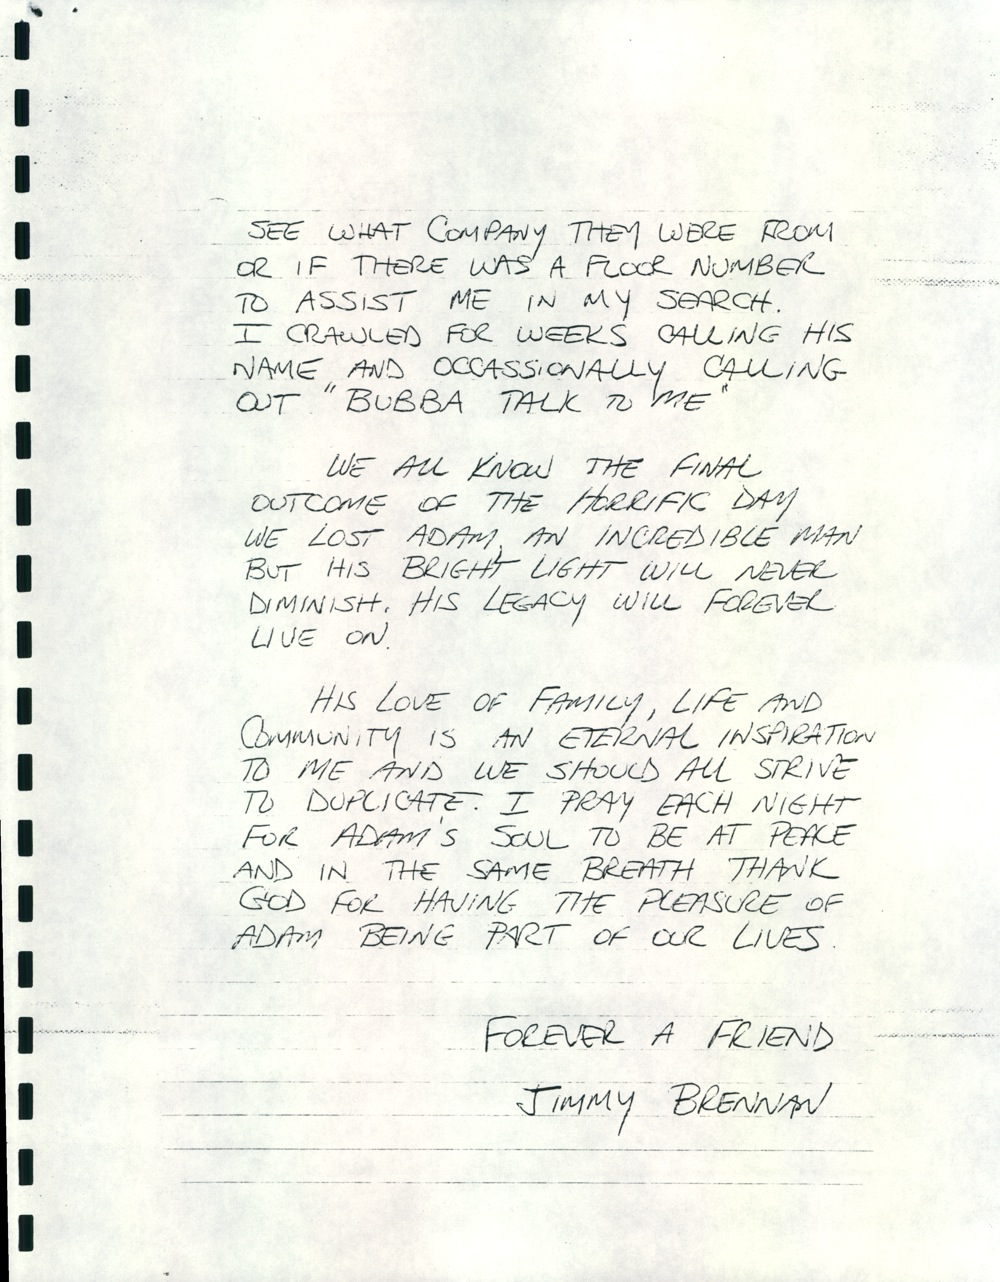 SEE WHAT COMPANY THEY WERE FROM
OR IF THERE WAS A FLOOR NUMBER
TO ASSIST ME IN MY SEARCH.
I CRAWLED FOR WEEKS CALLING HIS
NAME AND OCCASSIONALLY CALLING
OUT "BUBBA TALK TO ME"
WE ALL KNOW THE FINAL
OUTCOME OF THE HORRIFIC DAY
WE LOST ADAM, AN INCREDIBLE MAN
BUT HIS BRIGHT LIGHT WILL NEVER
DIMINISH. HIS LEGACY WILL FOREVER
LIVE ON.
HIS LOVE OF FAMILY, LIFE AND
COMMUNITY IS AN ETERNAL INSPIRATION
TO ME AND WE SHOULD ALL STRIVE
TO DUPLICATE. I PRAY EACH NIGHT
FOR ADAM'S SOUL TO BE AT PEACE
AND IN THE SAME BREATH THANK
GOD FOR HAVING THE PLEASURE OF
ADAM BEING PART OF OUR LIVES.
FOREVER A FRIEND
JIMMY BRENNAN